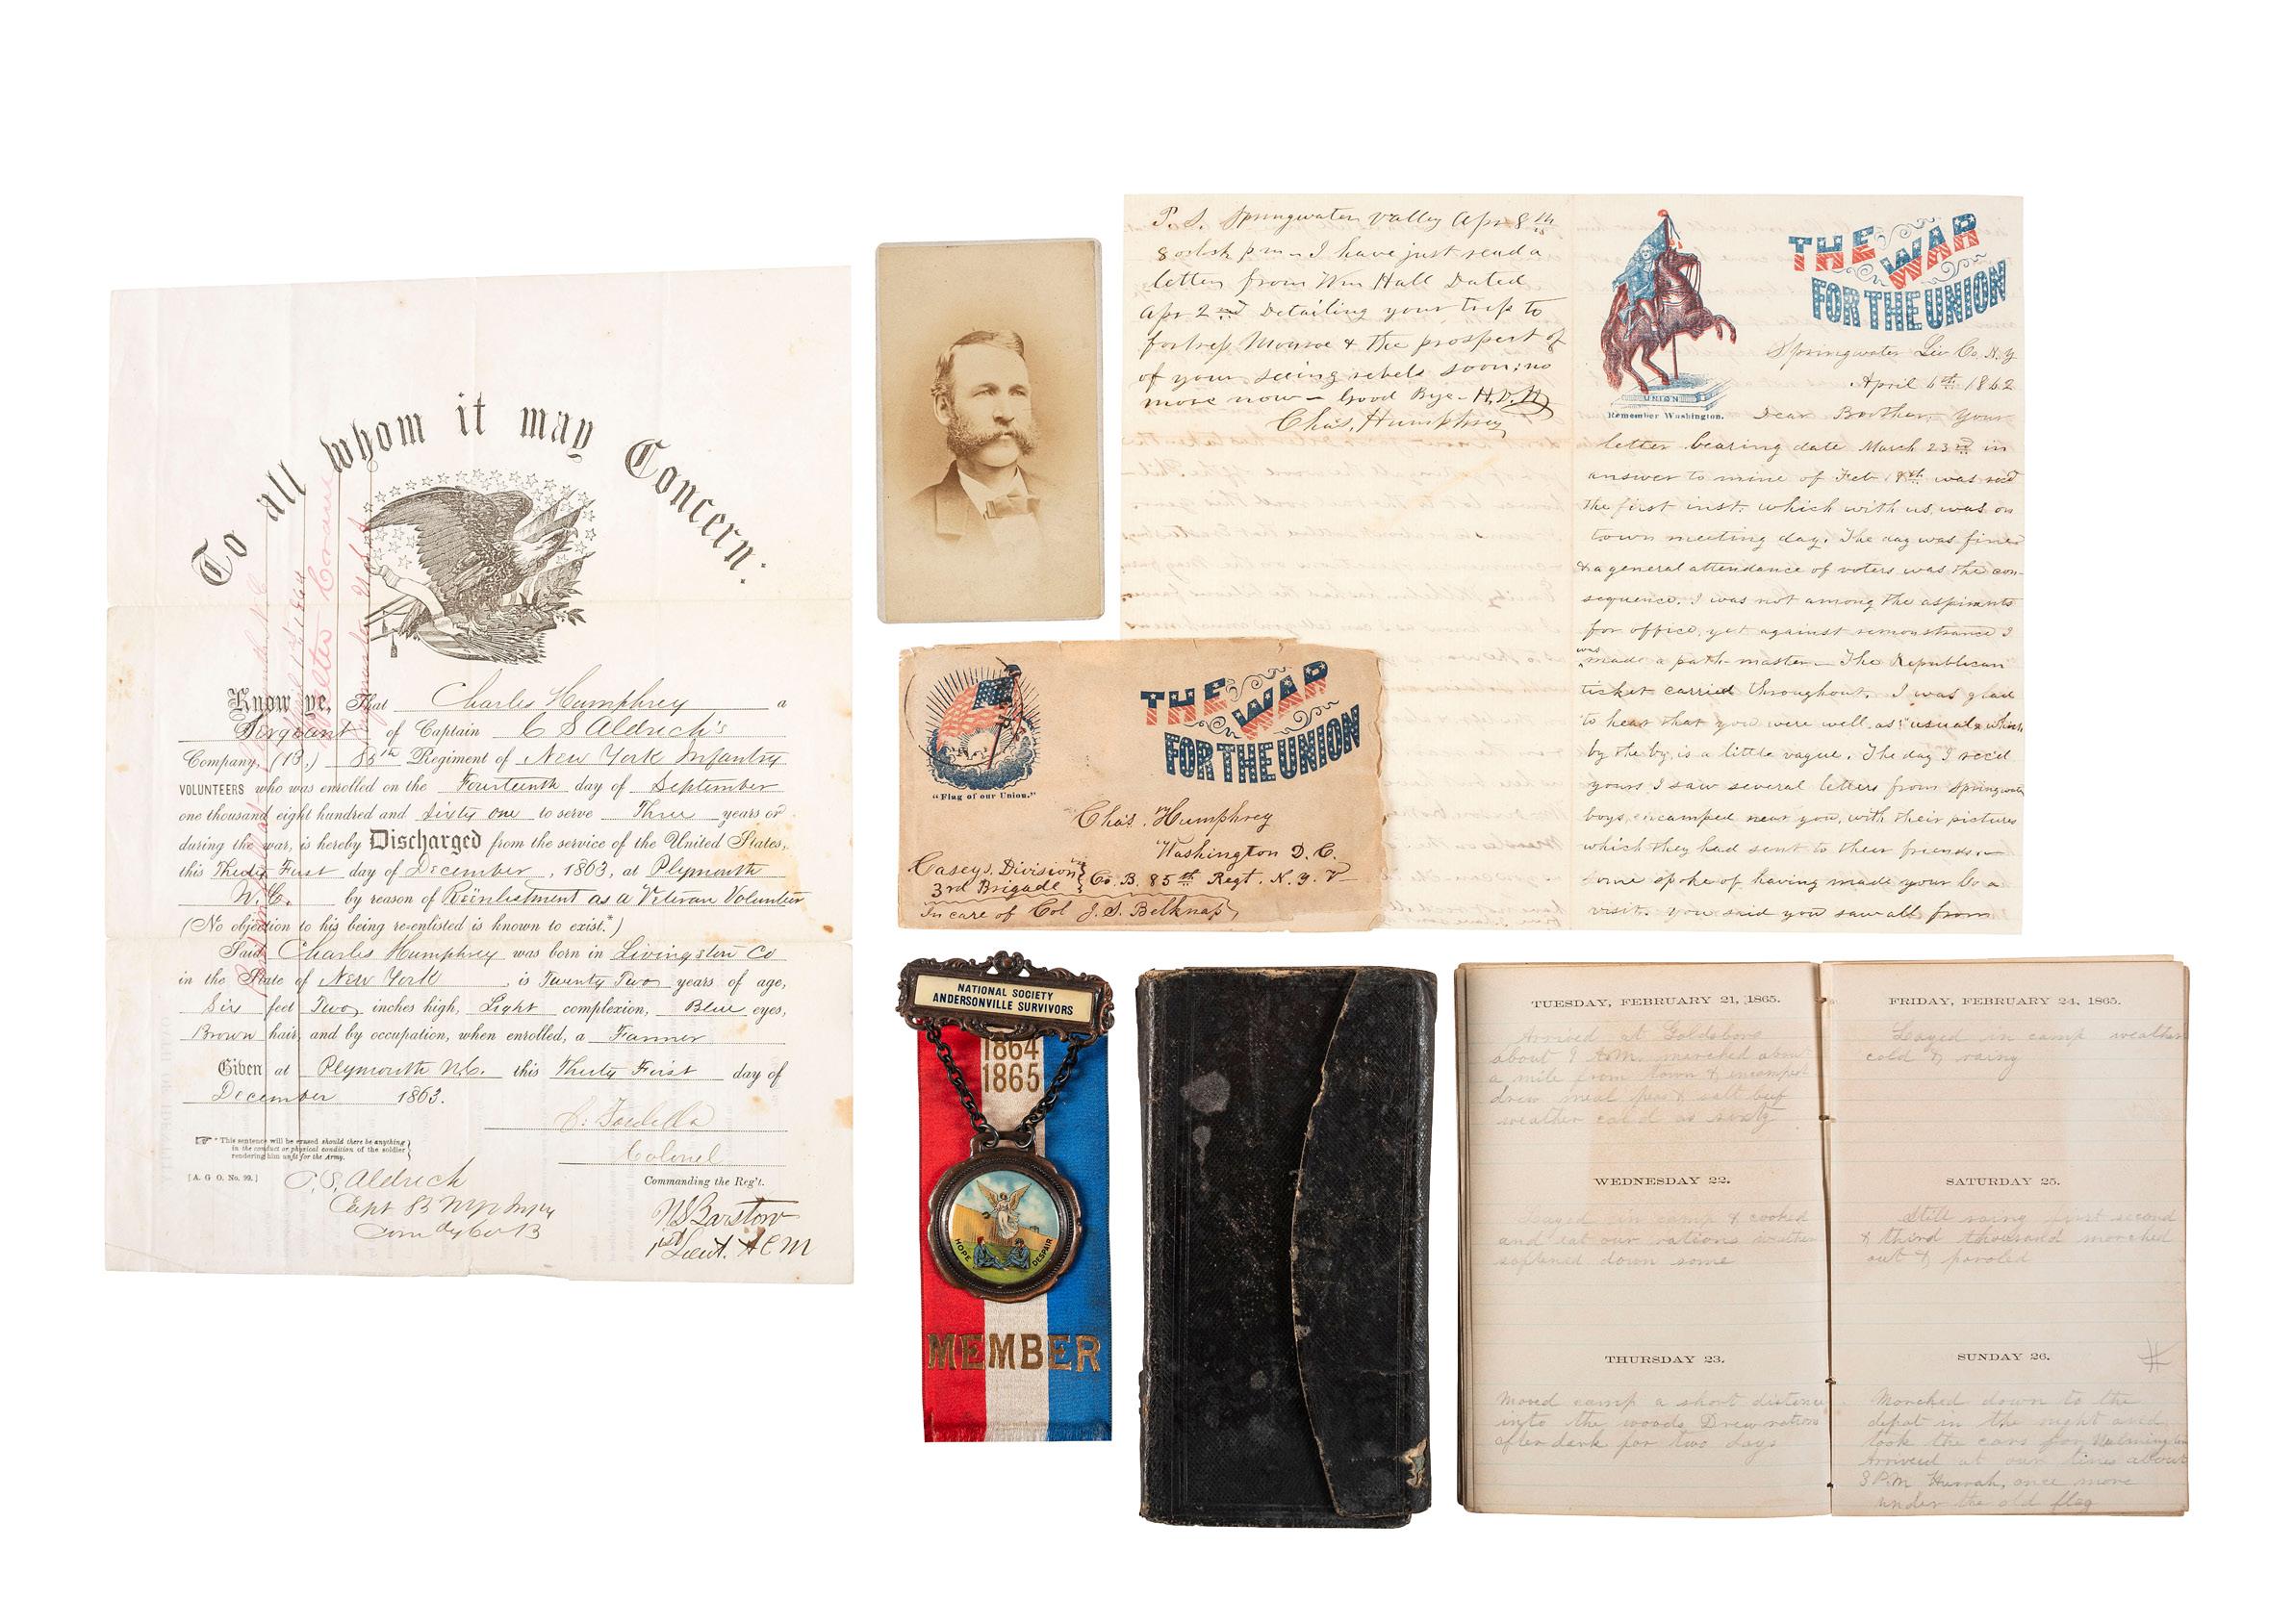 To all whom it may Concern:
Know ye, That Charles Humphrey a
Sergeant of Captain C S Aldrich's
Company, (B.) 85th Regiment of New York Infantry
VOLUNTEERS who was enrolled on the Fourteenth day of September
one thousand eight hundred and Sixty one to serve Three years or
during the war, is hereby Discharged from the service of the United States,
this Thirty First day of December, 1863, at Plymouth
N.C. by reason of Reënlistment as a Veteran Volunteer
(No objection to his being re-enlisted is known to exist.*)
Said Charles Humphrey was born in Livingston Co
in the State of New York, is Twenty Two years of age,
Six feet Two inches high, Light complexion, Blue eyes,
Brown hair, and by occupation, when enrolled, a Farmer
Given at Plymouth N.C. this Thirty First day of
December 1863.
Colonel
Commanding the Reg't.
*This sentence will be erased should there be anything
in the conduct or physical condition of the soldier
rendering him unfit for the Army.
[A. G O. No. 99.]
C. S. Aldrich
Capt 85 N.Y.
Comdg Co B
Barstow
1st Lieut. A C M
P. S. Springwater Valley Apr 8th
8 oclock p m - I have just read a
letter from Wm Hall Dated
Apr 2nd Detailing your trip to
fortress Monroe & the prospect of
of your seeing rebels soon; no
more now - Good Bye - H. D. H
Chas. Humphrey
THE WAR
FOR THE UNION
UNION
Remember Washington.
Springwater Liv Co. N. Y
April 6th 1862
Dear Brother, Your
letter bearing date March 23rd in
answer to mine of Feb was recd
the first inst. which with us, was on
town meeting day. The day was fine
& a general attendance of voters was the con-
sequence. I was not among the aspirants
for office, yet against remonstrance I
was made a path-master - The Republican
ticket carried throughout. I was glad
to hear that you were well, as "usual" which
by the by, is a little vague. The day I rec'd
yours, I saw several letters from Springwater
boys, encamped near you, with their pictures
which they had sent to their friends -
some spoke of having made your Co a
visit. You said you saw all from
THE WAR
FOR THE UNION
"Flag of our Union."
Chas. Humphrey
Washington D. C.
Caseys. Division
3rd Brigade } Co. B. 85th Regt. N. Y. V
In care of Col J. S. Belknap
NATIONAL SOCIETY
ANDERSONVILLE SURVIVORS
1864
1865
HOPE DESPAIR
MEMBER
TUESDAY, FEBRUARY 21, 1865.
Arrived at Goldsboro
about 9 A.M. marched about
a mile from town & encamped
drew meal peas & salt beef
weather cold as
WEDNESDAY 22.
Stayed in camp & cooked
and eat our rations weather
softened down some
THURSDAY 23.
Moved camp a short distance
into the woods Drew rations
after dark for two days
FRIDAY, FEBRUARY 24, 1865.
Stayed in camp weather
cold & rainy
SATURDAY 25.
Still raing first second
& third thousand marched
out & paroled
SUNDAY 26.
Marched down to the
depot in the night and
took the cars for Wilmington
Arrived at our lines about
8 P.M Hurrah, once more
under the old flag